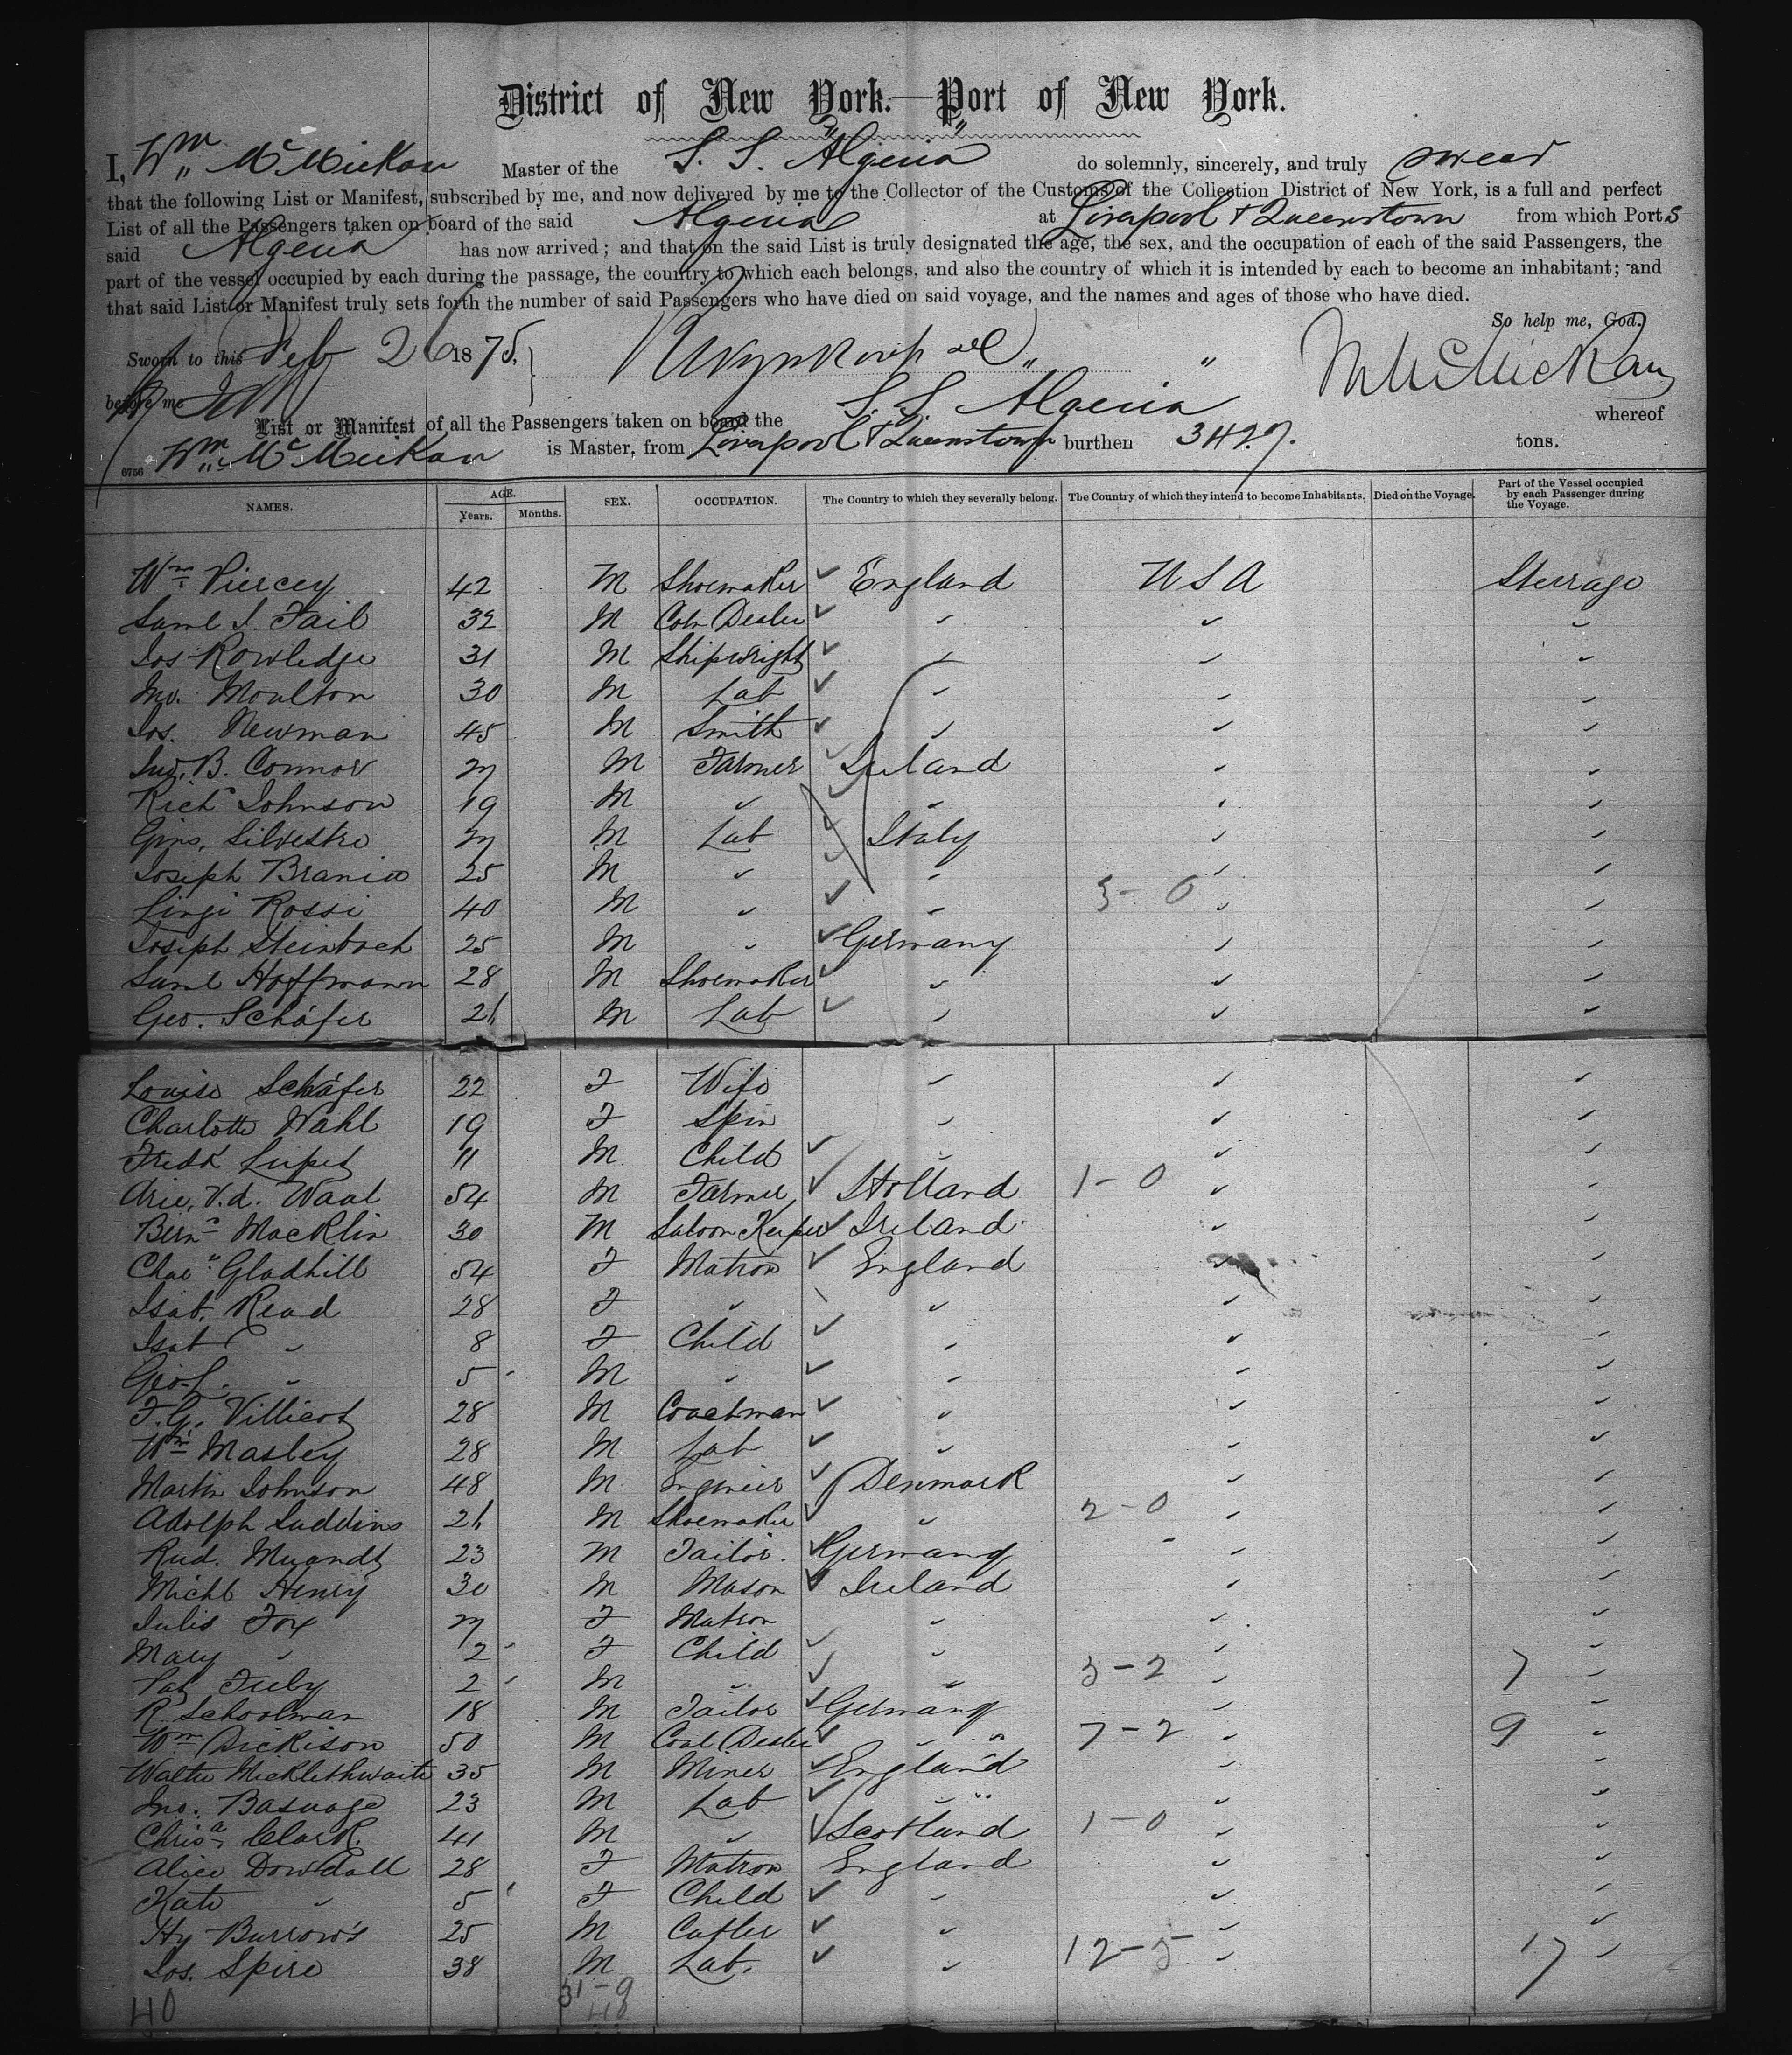 District of New York.—Port of New York.
I, Wm McMickan Master of the S. S. "Algeria" do solemnly, sincerely, and truly swear
that the following List or Manifest, subscribed by me, and now delivered by me to the Collector of the Customs of the Collection District of New York, is a full and perfect
List of all the Passengers taken on board of the said Algeria at Liverpool & Queenstown from which Ports
said Algeria has now arrived; and that on the said List is truly designated the age, the sex, and the occupation of each of the said Passengers, the
part of the vessel occupied by each during the passage, the country to which each belongs, and also the country of which it is intended by each to become an inhabitant; and
that said List or Manifest truly sets forth the number of said Passengers who have died on said voyage, and the names and ages of those who have died.
So help me, God.
Sworn to this Feb 26 1875, W McMickan
before me
List or Manifest of all the Passengers taken on board the S. S. Algeria whereof
6756 Wm McMickan is Master, from Liverpool & Queenstown burthen 3427. tons.
NAMES. AGE. Years. Months. SEX. OCCUPATION. The Country to which they severally belong. The Country of which they intend to become Inhabitants. Died on the Voyage. Part of the Vessel occupied by each Passenger during the Voyage.
Wm Piercey 42 M Shoemaker England USA Steerage
Saml S. Tail 32 M Dealer " " "
Jos Rowledge 31 M Shipwright " " "
Jno. Moulton 30 M Lab " " "
Jos. Newman 45 M Smith " " "
Jno. B. Connor 27 M Farmer Ireland " "
Richd Johnson 19 M " " " "
Silvestro 27 M Lab Italy " "
Joseph 25 M " " " "
Rossi 40 M " " 3-0 " "
Joseph Steinbach 25 M " Germany " "
Saml Hoffmann 28 M Shoemaker " " "
Geo. Schäfer 26 M Lab " " "
Louise Schäfer 22 F Wife " " "
Charlotte Wahl 19 F Spin " " "
Fredk 11 M Child " " "
Arie, V.d. Waal 54 M Farmer Holland 1-0 " "
Bernd Macklin 30 M Saloon Keeper Ireland " "
Gladhill 54 F Matron England " "
Isab. Read 28 F " " " "
Isab " 8 F Child " " "
Geo. " 5 M " " " "
F.G. 28 M Coachman " " "
Wm Masbey 28 M Lab " " "
Martin Johnson 48 M Engineer Denmark " "
Adolph Luddins 26 M Shoemaker " 2-0 " "
Rud. 23 M Tailor. Germany " "
Michl Henry 30 M Mason Ireland " "
Julis Fox 27 F Matron " " "
Mary " 2 F Child " " "
Pat 2 M " " 3-2 " 7 "
R. Schoolman 18 M Tailor Germany " "
Wm Dickison 50 M Coal Dealer " 7-2 " 9 "
Walter Micklethwaite 35 M Miner England " "
Jno. Basnage 23 M Lab " " "
Clark 41 M " Scotland 1-0 " "
Alice Dowdall 28 F Matron England " "
Kate " 5 F Child " " "
Hy Burrows 25 M Cutler " " "
Jos. Spire 38 M Lab. " 12-5 " 17 "
31-9
40 40